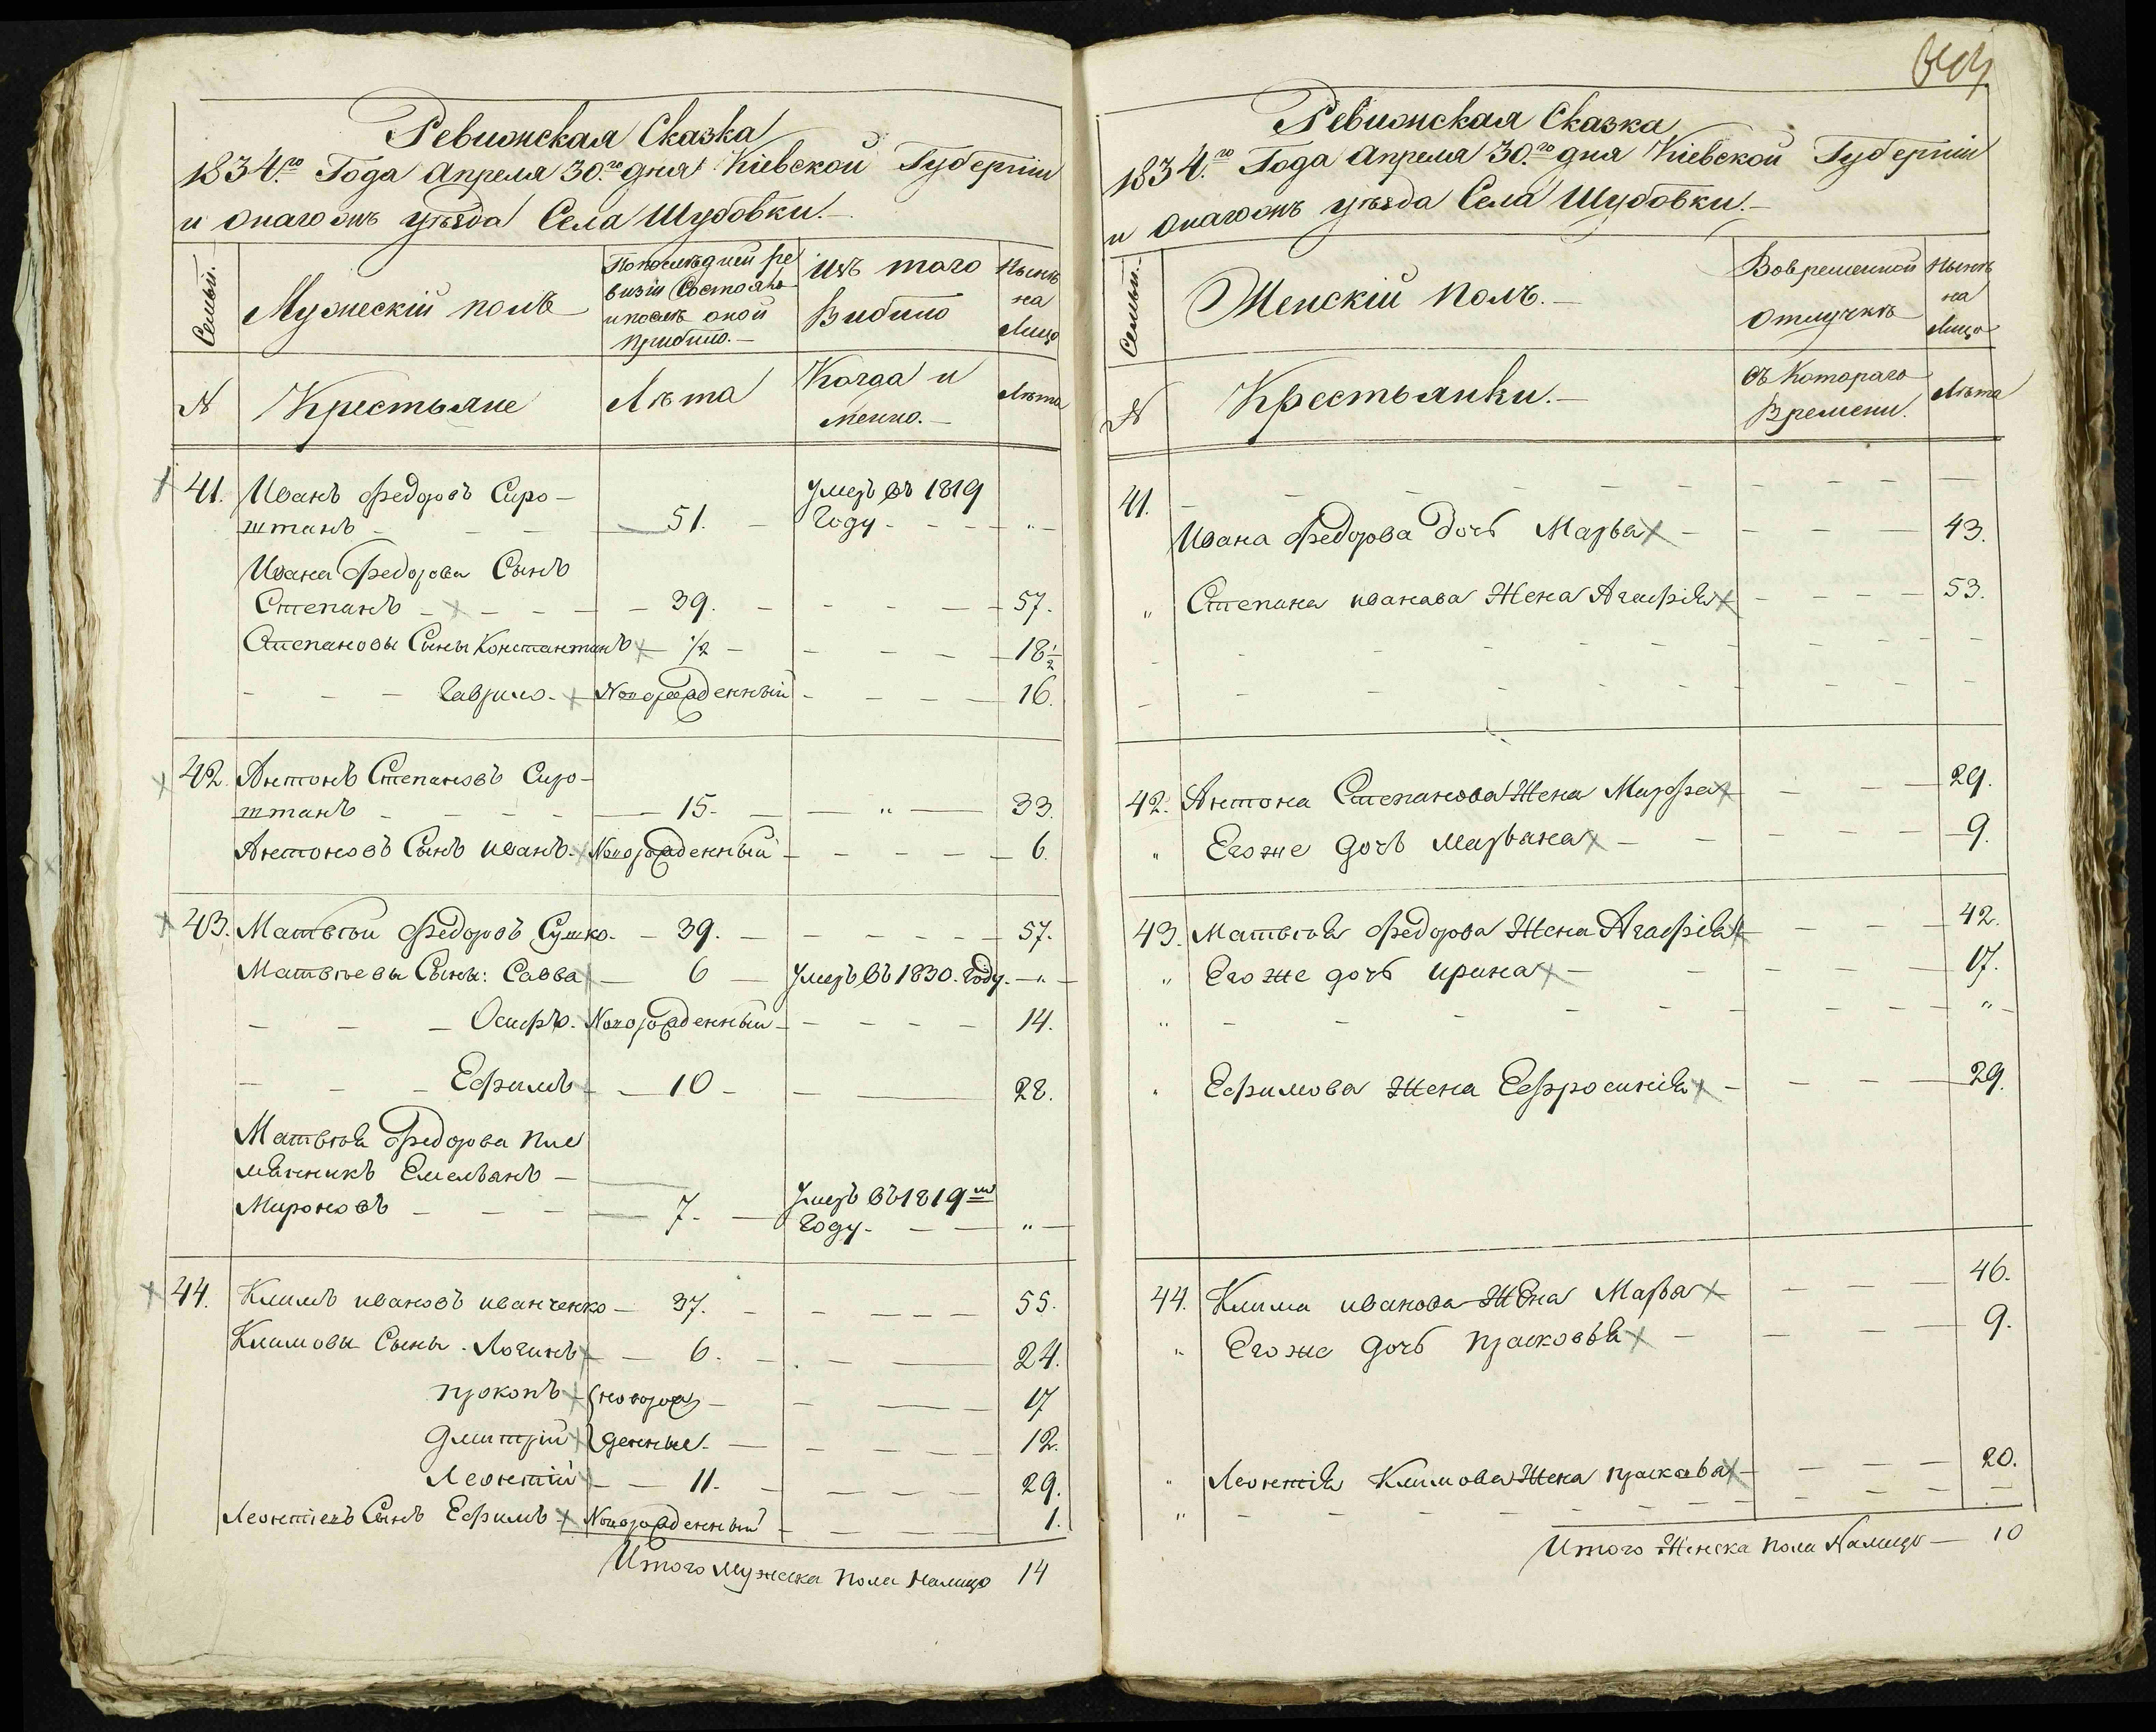 Ревижская Сказка
1834.го Года Апреля 30.го дня Кіевской Губерніи
и онагожъ уѣзда Села Шубовки.
Семьи.
Мужескій полъ
Попослѣдней ре
визіи Состояло
и послѣ оной
прибыло.
Изъ того
Выбыло
Нынѣ
на
Лицо
№
Крестьяне
Лѣта
Когда и
менно.
Лѣта
41. Иванъ Федоровъ Сиро-
штанъ 51. Умеръ въ 1819
Году
Ивана Федорова Сынъ
Степанъ 39. 57.
Степановы Сыны Константинъ 1/2 18 1/2
Гаврило. Новорожденный 16.
42. Антонъ Степановъ Сиро-
штанъ 15. „ 33.
Антоновъ Сынъ иванъ. Новорожденный 6.
43. Матвѣй Федоровъ Сушко. 39. 57.
Матвѣевы Сыны: Савва 6 Умеръ въ 1830. Году. „
Осифъ. Новорожденный 14.
Ефимъ 10 28.
Матвѣя Федорова пле
мянникъ Емельянъ
Мироновъ 7. Умеръ въ 1819м
Году. „
44. Климъ ивановъ иванченко 37. 55.
Климовы Сыны. Логинъ 6. 24.
прокопъ (новорож 17
дмитрій денные. 12.
Леонтій 11. 29.
Леонтіевъ Сынъ Ефимъ Новорожденный 1.
Итого мужеска пола налицо 14
Ревижская Сказка
1834.го Года Апреля 30.го дня Кіевской Губерніи
и онагожъ уѣзда Села Шубовки.
Семьи.
Женскій полъ.
Вовременной
отлучкѣ
Нынѣ
на
Лицо
№
Крестьянки.
Съ Котораго
Времени.
Лѣта
41.
Ивана Федорова дочь Марья 43.
„ Степана иванова Жена Агафія 53.
42. Антона Степанова Жена Марфа 29.
„ Его же дочь марьяна 9.
43. Матвѣя Федорова Жена Агафія 42.
„ Его же дочь ирина 17.
„ „
„ Ефимова Жена Ефросинія 29.
44. Клима иванова Жена Марья 46.
„ Его же дочь прасковья 9.
„ Леонтія Климова Жена прасковья 20.
„
Итого Женска пола Налицо 10